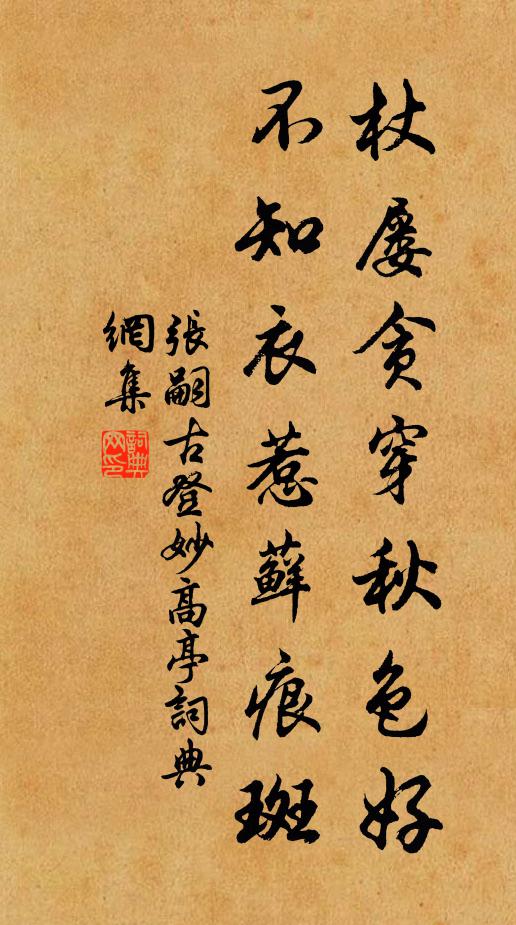 杖屨貪穿秋色好
不知衣惹蘚痕斑
張嗣古登妙高亭詞典
網集
詞典
网印